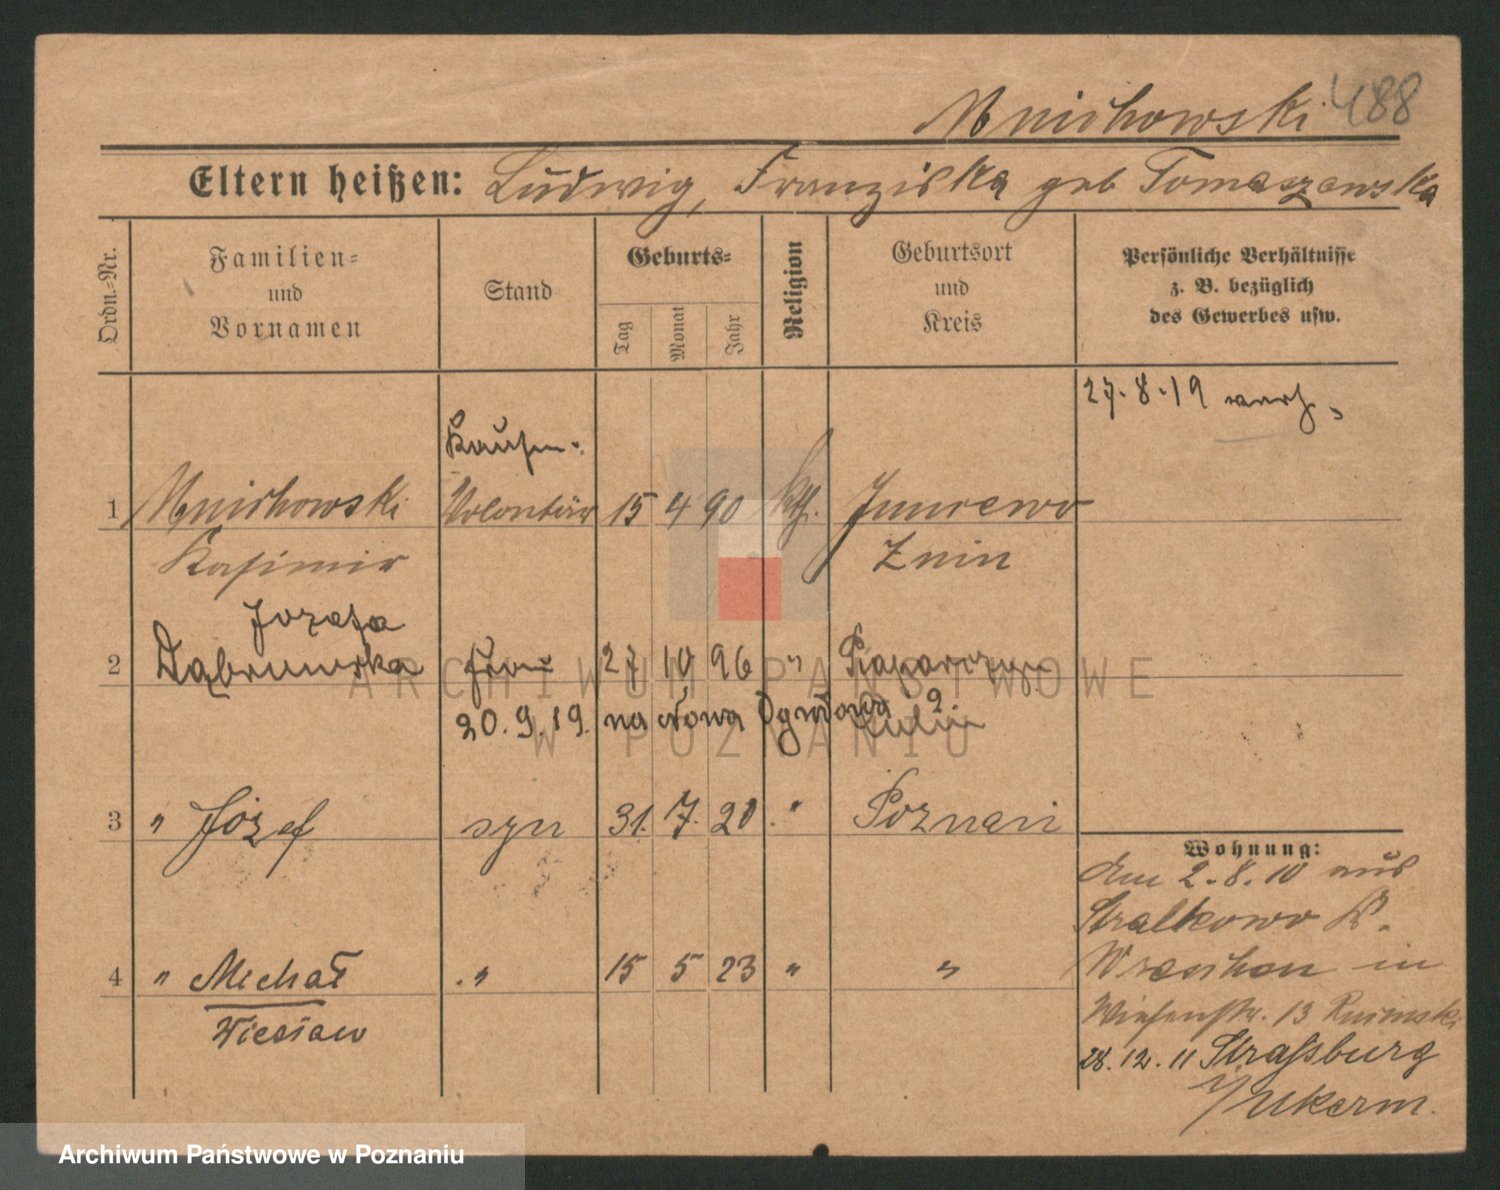 Mnichowski 488
Eltern heißen: Ludwig, Franziska geb Tomaszewska
Ordn.-Nr.
Familien-
und
Vornamen
Stand
Geburts-
Tag
Monat
Jahr
Religion
Geburtsort
und
Kreis
Persönliche Verhältnisse
z. B. bezüglich
des Gewerbes usw.
27.8.19 verh.
Kaufm.
1 Mnichowski Volontär 15 4 90 kth.
Kasimir Znin
Józefa
2 Dąbrowska Frau 27 10 96 "
20.9.19. na Nowa Ogrodowa 2
3 " Józef syn 31. 7. 20 " Poznań
Wohnung:
den 2.8.10 aus
Stralkowo K.
4 " Michał " 15 5 23 " "
Wreschen in
Wiesław
Wiesenstr. 13
28.12.11 Strassburg
i/Ukerm.
ARCHIWUM PAŃSTWOWE
W POZNANIU
Archiwum Państwowe w Poznaniu